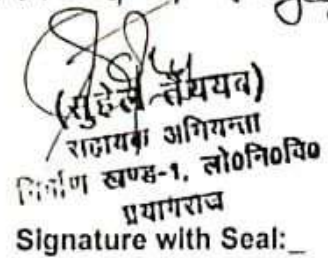 (सुहेल तैययब)
सहायक अभियन्ता
निर्माण खण्ड-1, लो०नि०वि०
प्रयागराज
Signature with Seal:_